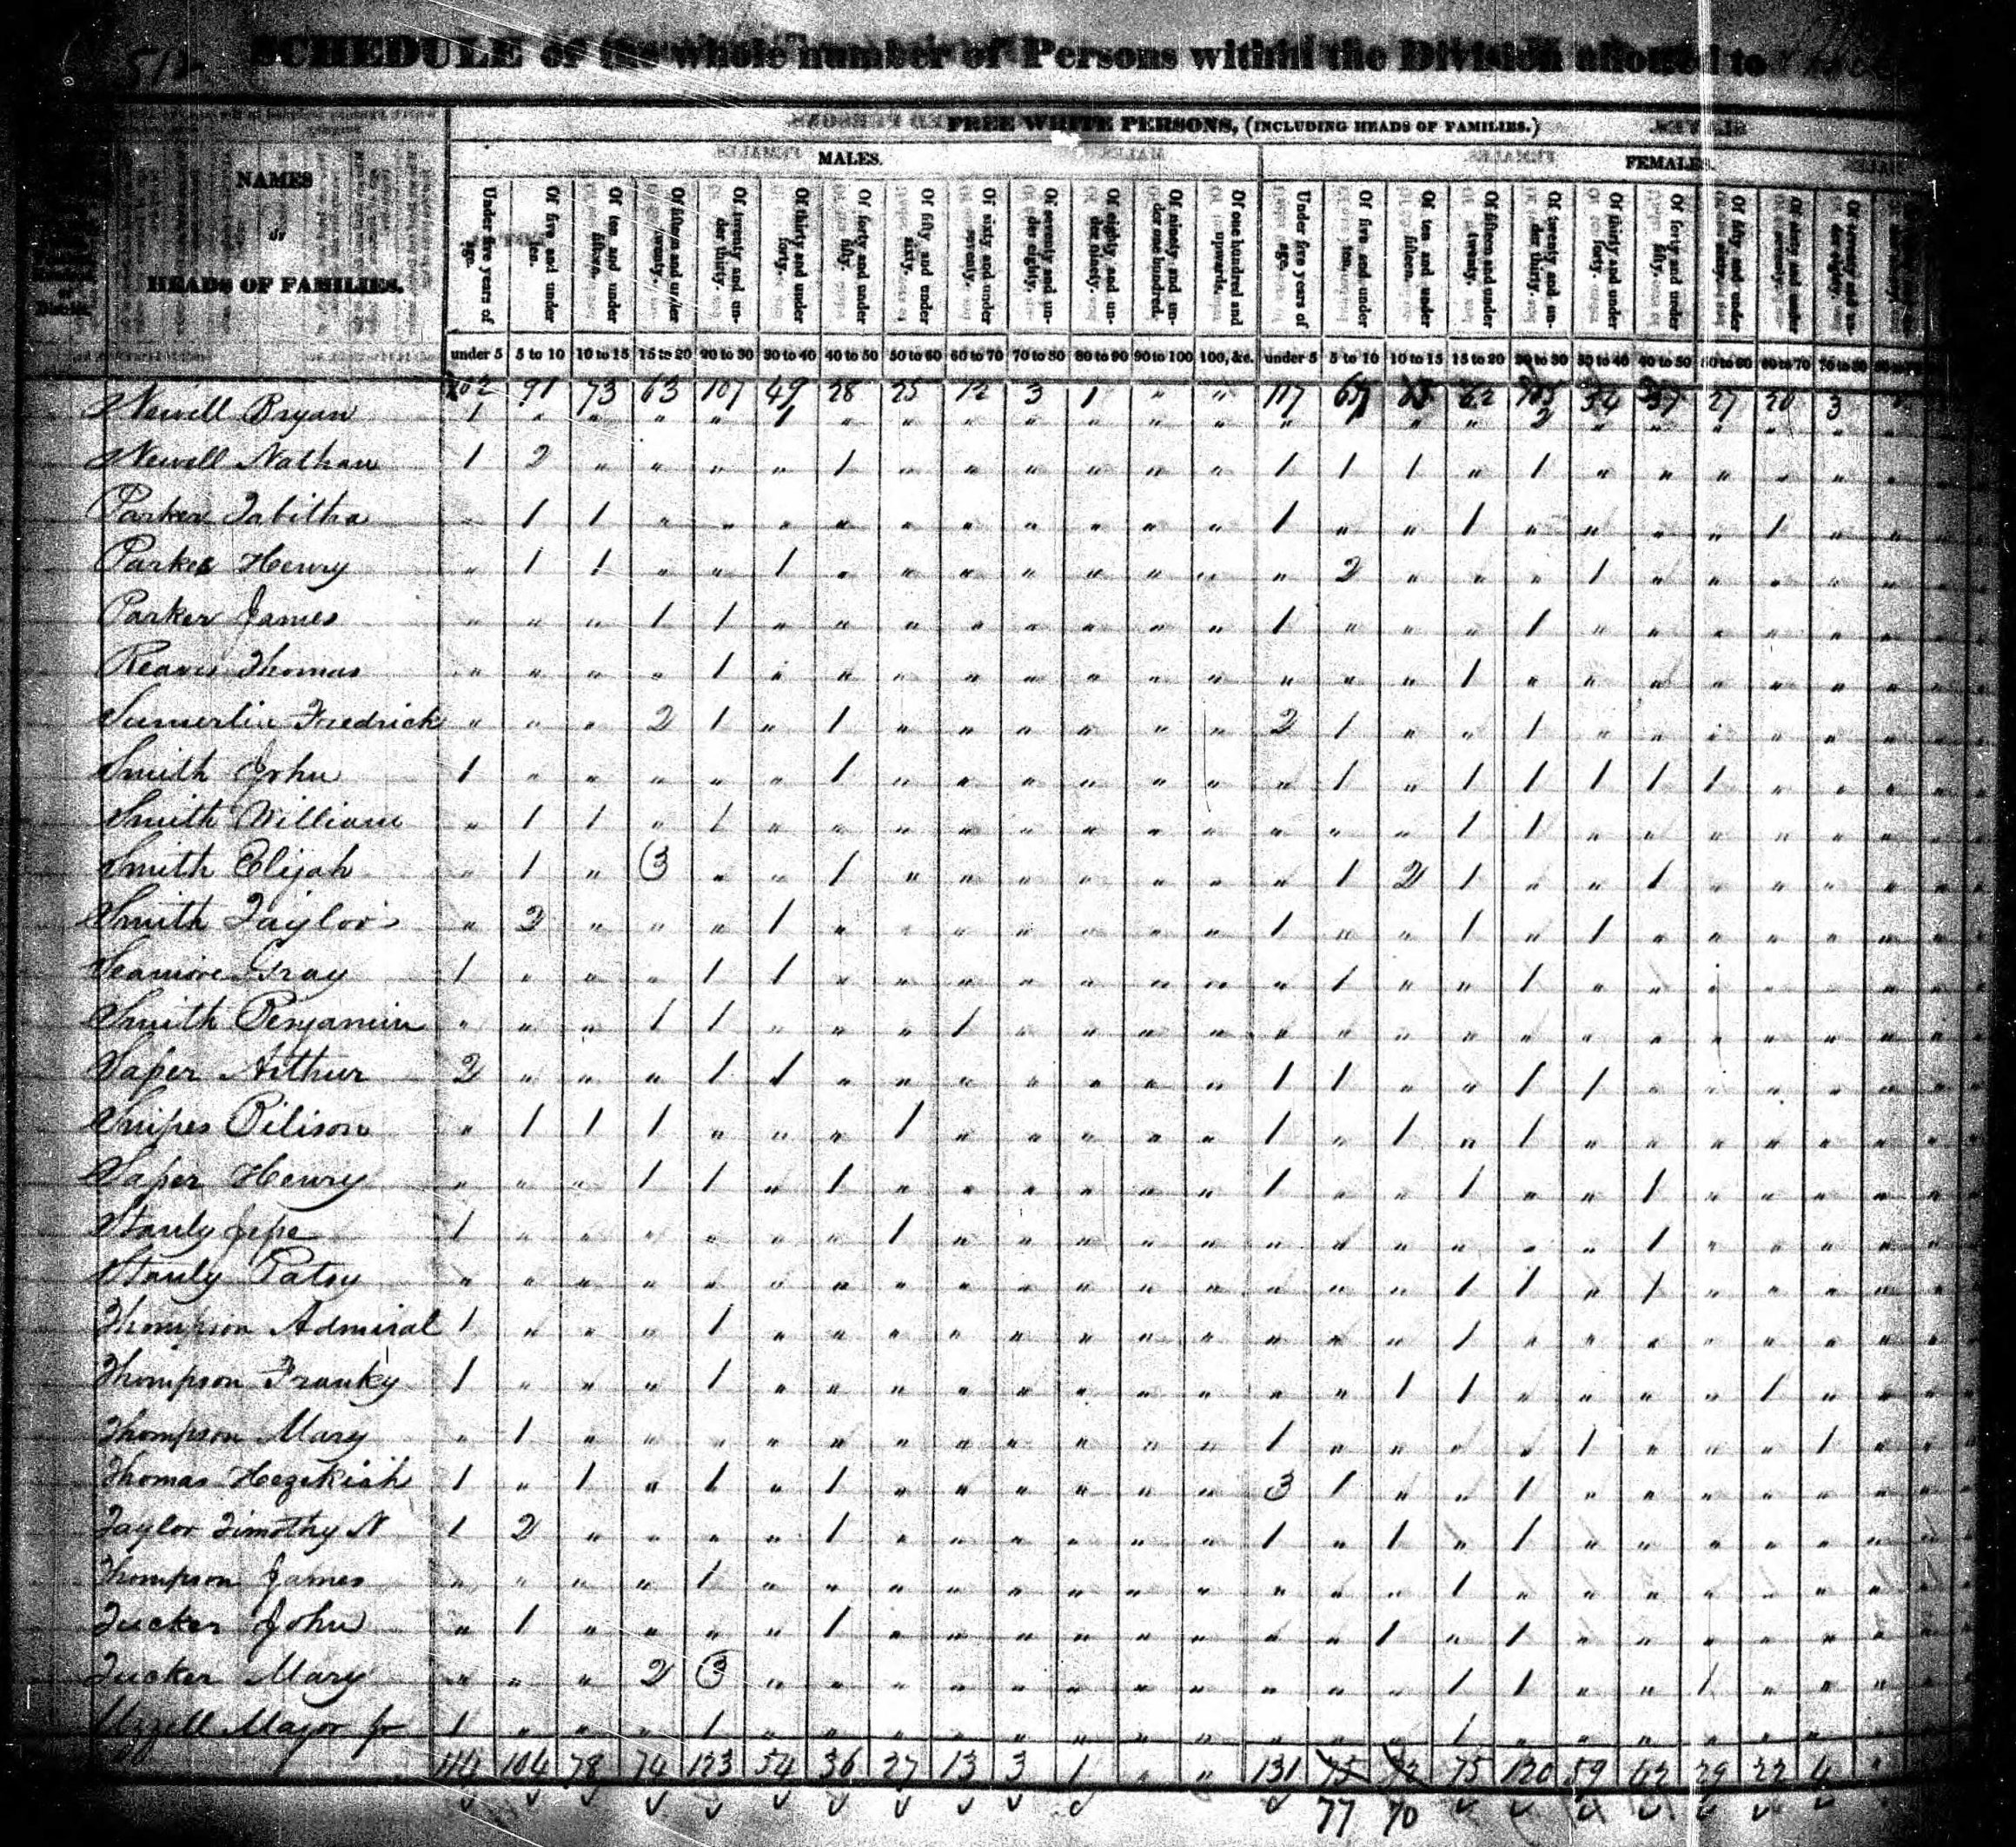 512
SCHEDULE of the whole number of Persons within the Division allotted to
FREE WHITE PERSONS, (INCLUDING HEADS OF FAMILIES.)
MALES. FEMALES.
NAMES
OF
HEADS OF FAMILIES.
Under five years of age. Of five and under ten. Of ten and under fifteen. Of fifteen and under twenty. Of twenty and under thirty. Of thirty and under forty. Of forty and under fifty. Of fifty and under sixty. Of sixty and under seventy. Of seventy and under eighty. Of eighty and under ninety. Of ninety and under one hundred. Of one hundred and upwards. Under five years of age. Of five and under ten. Of ten and under fifteen. Of fifteen and under twenty. Of twenty and under thirty. Of thirty and under forty. Of forty and under fifty. Of fifty and under sixty. Of sixty and under seventy. Of seventy and under eighty.
under 5 5 to 10 10 to 15 15 to 20 20 to 30 30 to 40 40 to 50 50 to 60 60 to 70 70 to 80 80 to 90 90 to 100 100, &c. under 5 5 to 10 10 to 15 15 to 20 20 to 30 30 to 40 40 to 50 50 to 60 60 to 70 70 to 80
102 91 73 63 107 49 28 25 12 3 1 " " 117 27 20 3
Newell Bryan 1 " " " " 1 " " " " " " " " 1 " " 2 " " " " "
Newell Nathan 1 2 " " " " 1 " " " " " " 1 1 1 " 1 " " " " "
Parker Tabitha " 1 1 " " " " " " " " " " 1 " " 1 " " " " 1 "
Parker Henry " 1 1 " " 1 " " " " " " " " 2 " " " 1 " " " "
Parker James " " " 1 1 " " " " " " " " 1 " " " 1 " " " " "
Reaves Thomas " " " " 1 " " " " " " " " " " " 1 " " " " " "
Sumerlin Fredrick " " " 2 1 " 1 " " " " " " 2 1 " " 1 " " " " "
Smith John 1 " " " " " 1 " " " " " " " 1 " 1 1 1 1 1 " "
Smith William " 1 1 " 1 " " " " " " " " " " " 1 1 " " " " "
Smith Elijah " 1 " 3 " " 1 " " " " " " " 1 2 1 " " 1 " " "
Smith Taylor " 2 " " " 1 " " " " " " " 1 " " 1 " 1 " " " "
Seamore Gray 1 " " " 1 1 " " " " " " " " 1 " " 1 " " " " "
Smith Benjamin " " " 1 1 " " " 1 " " " " " " " " " " " " " "
Saper Arthur 2 " " " 1 1 " " " " " " " 1 1 " " 1 1 " " " "
Snipes Pilison " 1 1 1 " " " 1 " " " " " 1 " 1 " 1 " " " " "
Saper Henry " " " 1 1 " 1 " " " " " " 1 " " 1 " " 1 " " "
Stanly Jesse 1 " " " " " " 1 " " " " " " " " " " " 1 " " "
Stanly Patsy " " " " " " " " " " " " " " " " 1 1 " 1 " " "
Thompson Admiral 1 " " " 1 " " " " " " " " " " " 1 " " " " " "
Thompson Franky 1 " " " 1 " " " " " " " " " " 1 1 " " " " 1 "
Thompson Mary " 1 " " " " " " " " " " " 1 " " " " 1 " " " 1
Thomas Hezekiah 1 " 1 " 1 " 1 " " " " " " 3 1 " " 1 " " " " "
Taylor Timothy N 1 2 " " " " 1 " " " " " " 1 " 1 " 1 " " " " "
Thompson James " " " " 1 " " " " " " " " " " " 1 " " " " " "
Tucker John " 1 " " " " 1 " " " " " " " " 1 " 1 " " " " "
Tucker Mary " " " 2 3 " " " " " " " " " " " 1 1 " " 1 " "
Uzzell Major Jr 1 " " " 1 " " " " " " " " " " " 1 " " " " " "
114 104 78 74 123 54 36 27 13 3 1 " " 131 75 72 75 120 59 42 29 22 4
77 70